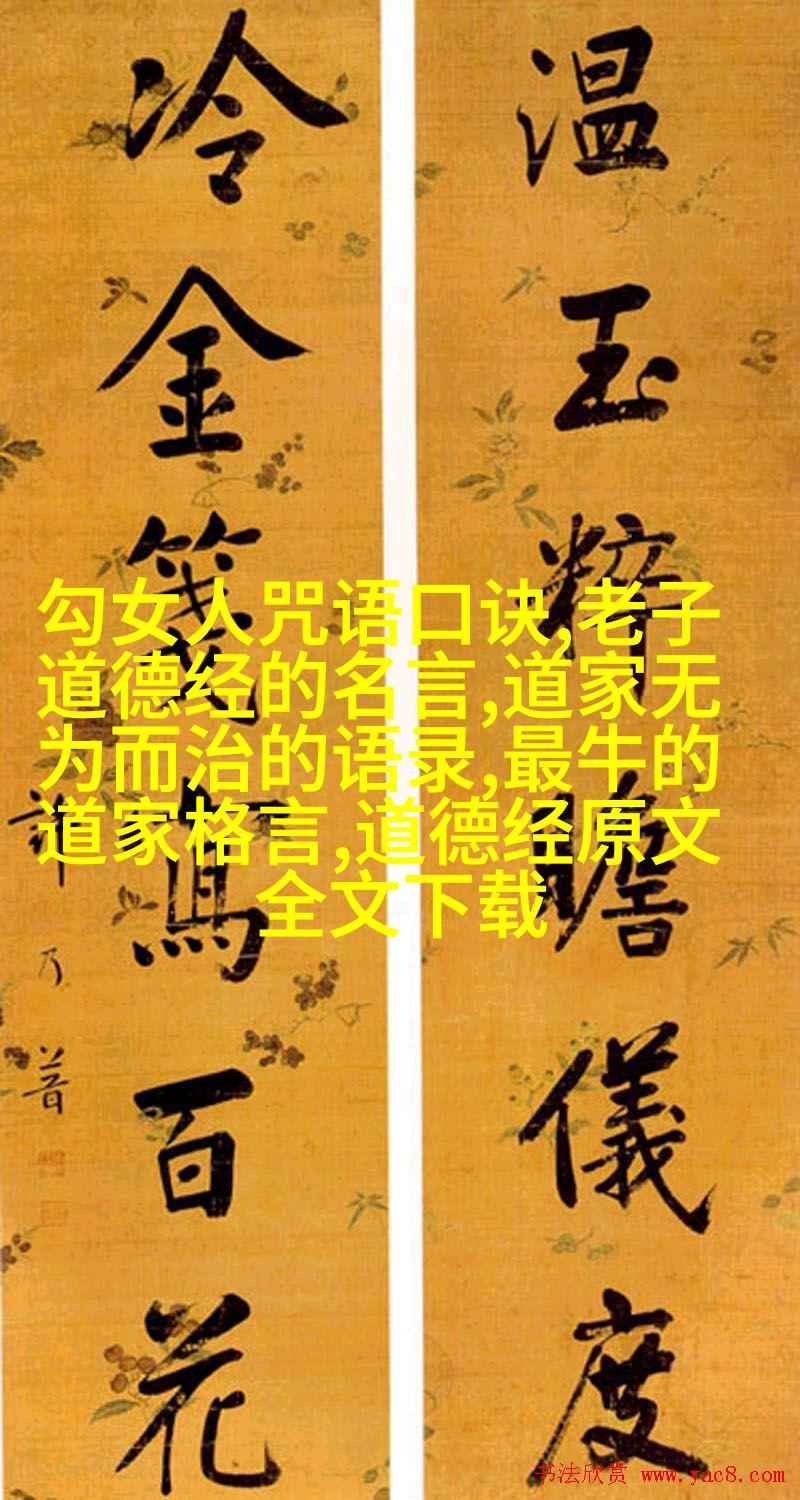 温玉粹瞻儀度
冷金箋寫百花
許乃普
勾女人咒语口诀,老子
道德经的名言,道家无
为而治的语录,最牛的
道家格言,道德经原文
全文下载
书法欣赏 www.yac8.com